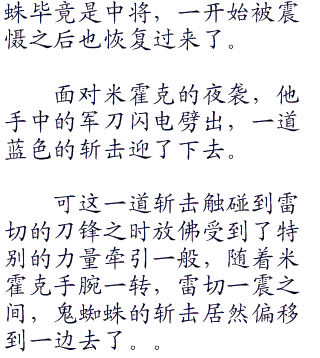 蛛毕竟是中将，一开始被震
慑之后也恢复过来了。
面对米霍克的夜袭，他
手中的军刀闪电劈出，一道
蓝色的斩击迎了下去。
可这一道斩击触碰到雷
切的刀锋之时放佛受到了特
别的力量牵引一般，随着米
霍克手腕一转，雷切一震之
间，鬼蜘蛛的斩击居然偏移
到一边去了。。